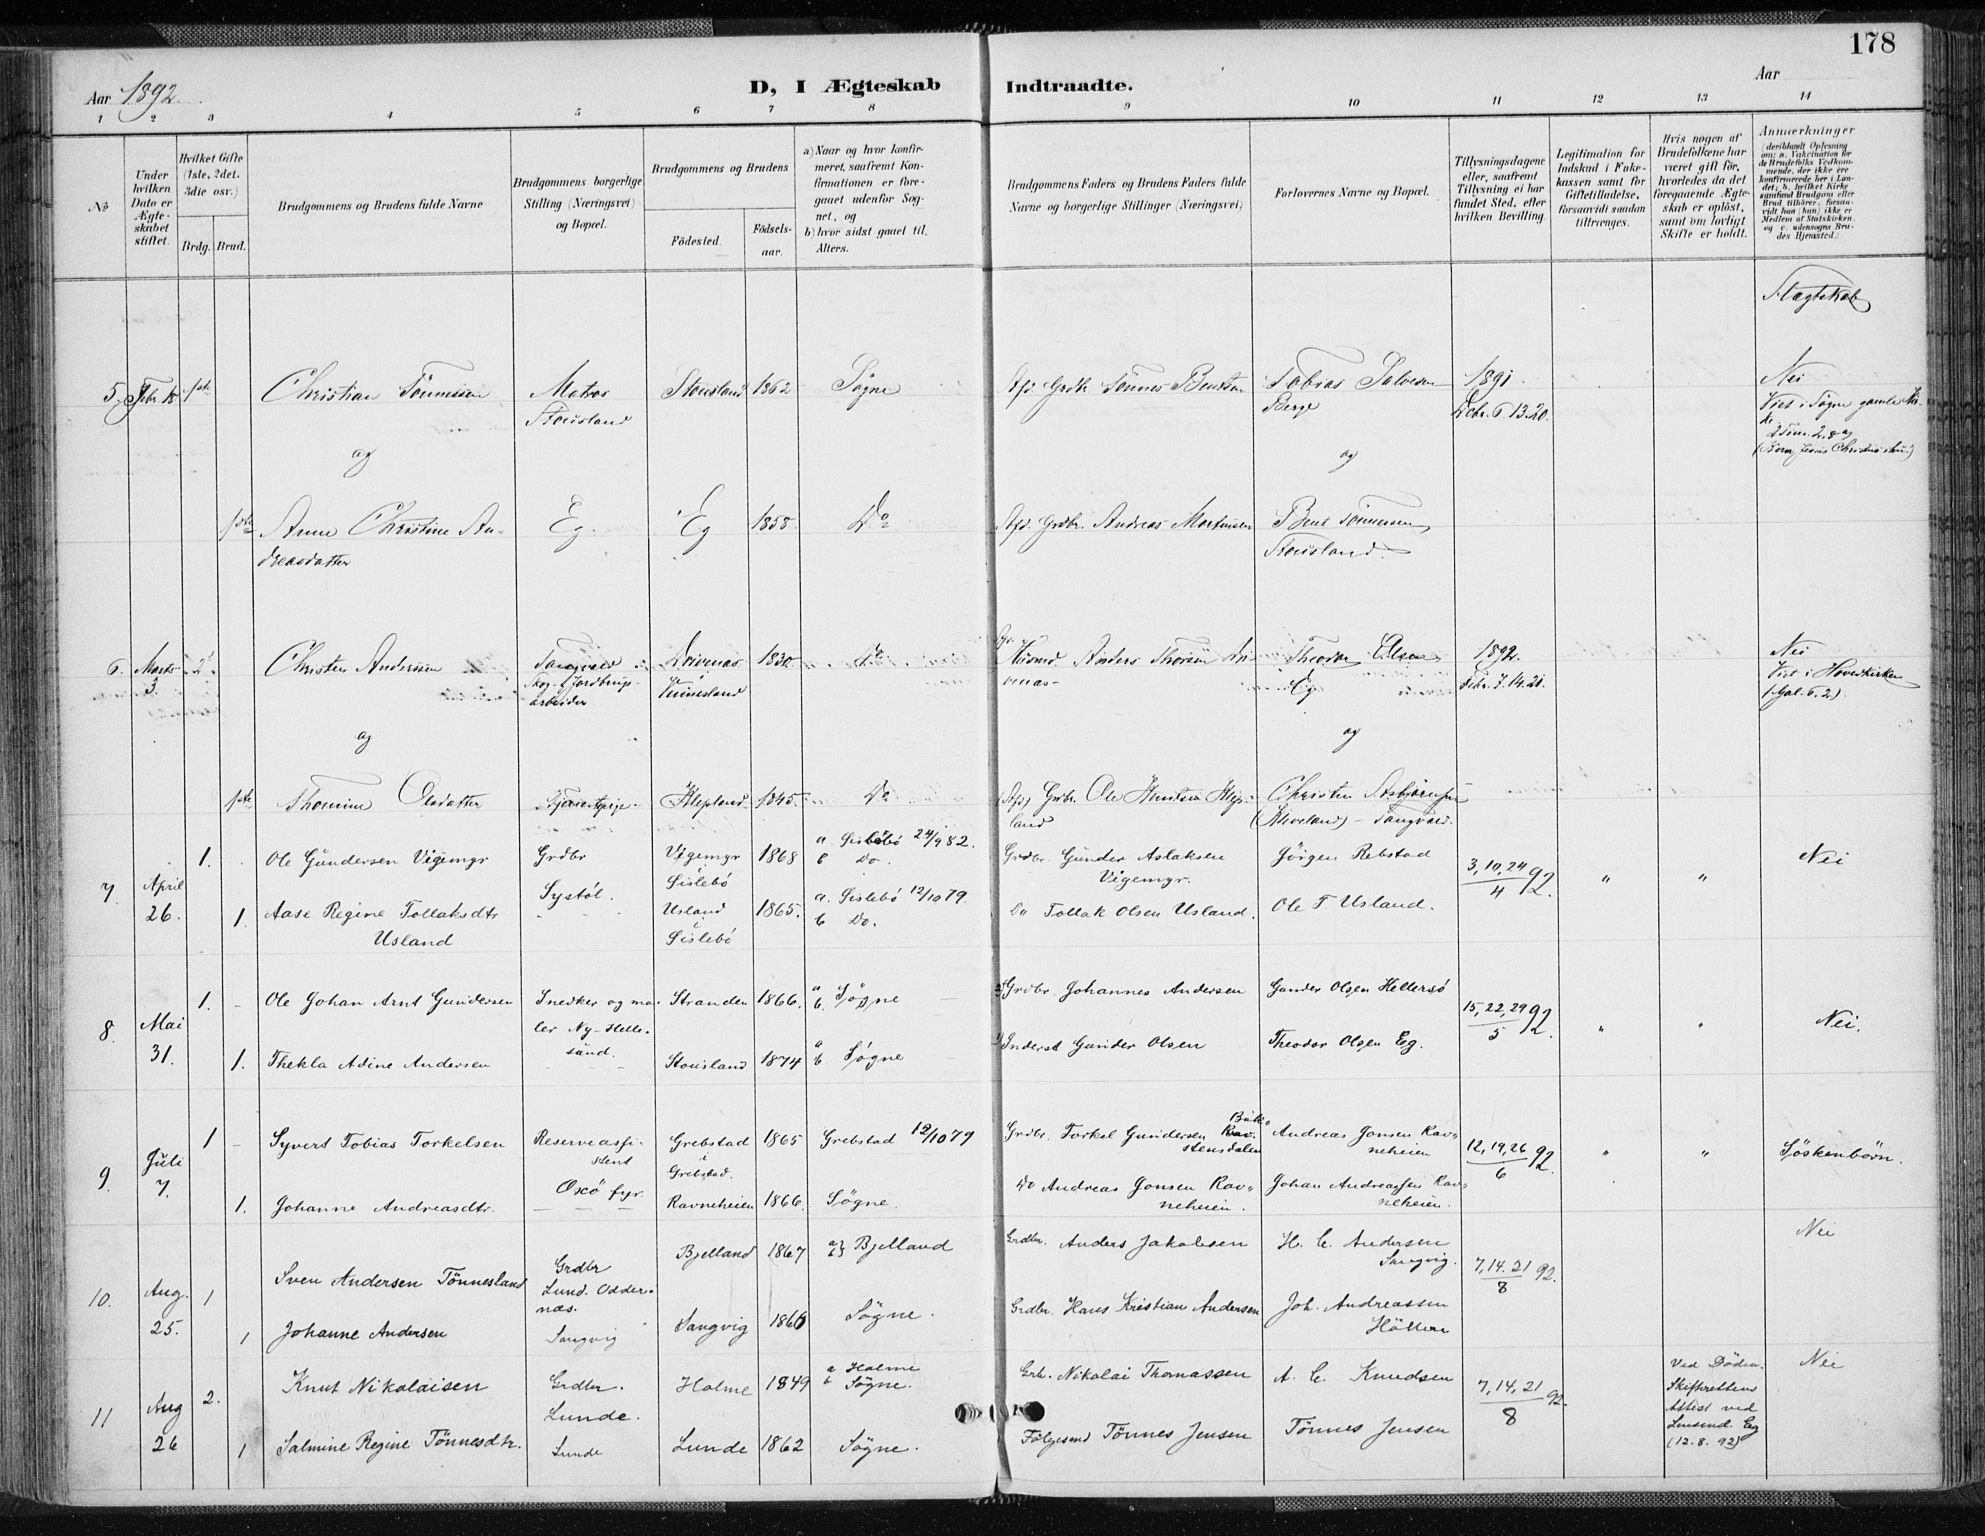 178
Aar 1892.
D, I Ægteskab Indtraadte.
Aar
1 2 3 4 5 6 7 8 9 10 11 12 13 14
No
Under hvilken Dato er Ægteskabet stiftet.
Hvilket Gifte (1ste, 2det. 3die osv.)
Brdg. Brud.
Brudgommens og Brudens fulde Navne
Brudgommens borgerlige Stilling (Næringsvei) og Bopæl.
Brudgommens og Brudens
Födested.
Födselsaar.
a) Naar og hvor konfirmeret, saafremt Konfirmationen er foregaaet udenfor Sognet, og
b) hvor sidst gaaet til. Alters.
Brudgommens Faders og Brudens Faders fulde Navne og borgerlige Stillinger (Næringsvei)
Forlovernes Navne og Bopæl.
Tillysningsdagene eller, saafremt Tillysning ei har fundet Sted, efter hvilken Bevilling.
Legitimation for Indskud i Enkekassen samt for Giftetilladelse, forsaavidt saadan tiltrænges.
Hvis nogen af Brudefolkene har været gift för, hvorledes da det foregaaende Ægteskab er oplöst, samt om lovligt Skifte er holdt.
Anmærkninger (deriblandt Oplysning om: a. Vakcination for de Brudefolks Vedkommende, der ikke ere konfirmerede her i Landet; b. hvilket Kirkesamfund Brudgom eller Brud tilhörer, forsaavidt han (hun) ikke er Medlem af Statskirken, og c. udensogns Brudes Hjemsted.)
Slægtskab
5. Febr. 18 1ste Christian Tönnessen Matros Stousland Stousland 1862 Søgne Afd Grdbr. Tönnes Bentsen Tobias Salvesen Berge 1891 Decbr. 6 13. 20. Nei
Viet i Søgne gamle
2 Tim. 2. 8
og og
1ste Anne Christine Andreasdatter Eg. Eg 1858 Do Afd. Grdbr. Andreas Mortensen Bent Tönnessen Stousland
6. Marts 3. 2d Christen Andersen Tangvald Skog- & Jordbrugsarbeider Drivenas Vennesland 1830 Do Husmd. Anders Thorsen Drivenas Theodor Olsen Eg 1892. Febr. 7. 14. 21. Nei
Viet i Hovedkirken
(Gal. 6. 2).
og og
1ste Thomine Olsdatter Tjenestepige Klepland 1845. Do (Afd) Grdbr. Ole Knutsen Klepland Christen Asbjörnsen (Kleveland) - Tangvald.
7. April 26. 1. Ole Gundersen Vigemyr Grdbr Systøl. Vigemyr Øislebö 1868 a. Øislebö 24/9 82. b Do. Grdbr. Gunder Aslaksen Vigemyr. Jörgen Rebstad 3, 10, 24/4 92. " " Nei
1. Aase Regine Tollaksdtr Usland Usland Øislebö 1865. a. Øislebö 12/10 79. b Do. Do Tollak Olsen Usland. Ole T Usland.
8. Mai 31. 1. Ole Johan Arnt Gundersen Snedker og maler Ny-Hellesund. Stranden 1866. a b. Søgne Grdbr. Johannes Andersen Gunder Olsen Hellersö 15, 22, 29/5 92. " " Nei.
1. Thekla Adine Andersen Stousland 1874 a b Søgne Inderst Gunder Olsen Theodor Olsen Eg.
9. Juli 7. 1 Syvert Tobias Torkelsen Reserveassistent Oxö fyr. Grebstad i Grebstad. 1865 Grebstad 12/10 79 Grdbr. Torkel Gundersen Bukstensdalen Andreas Jonsen Ravneheien 12, 19, 26/6 92. " " Søskenbörn.
1. Johanne Andreasdtr. Ravneheien 1866. Søgne. Do Andreas Jonsen Ravneheien. Johan Andreassen Ravneheien.
10. Aug. 25. 1 Sven Andersen Tönnesland Grdbr Lund. Oddernæs. Bjelland 1867 a) b) Bjelland Grdbr. Anders Jakobsen H. C. Andersen Sangvig. 7, 14. 21/8 92. Nei
1 Johanne Andersen Sangvig Sangvig 1866 Søgne. Grdbr. Hans Kristian Andersen Joh. Andreassen Hölleren
11 Aug 26 2. Knut Nikolaisen Grdbr. Lunde. Holme 1849 a Holme b Søgne. Grb. Nikolai Thomassen A. C. Knudsen 7, 14, 21/8 92. Ved Döden. Skifterettens Attest ved Lensmd. Eg (12. 8. 92) Nei
1 Salmine Regine Tönnesdtr. Lunde Lunde 1862 Søgne. Fölgesmd Tönnes Jensen Tönnes Jensen